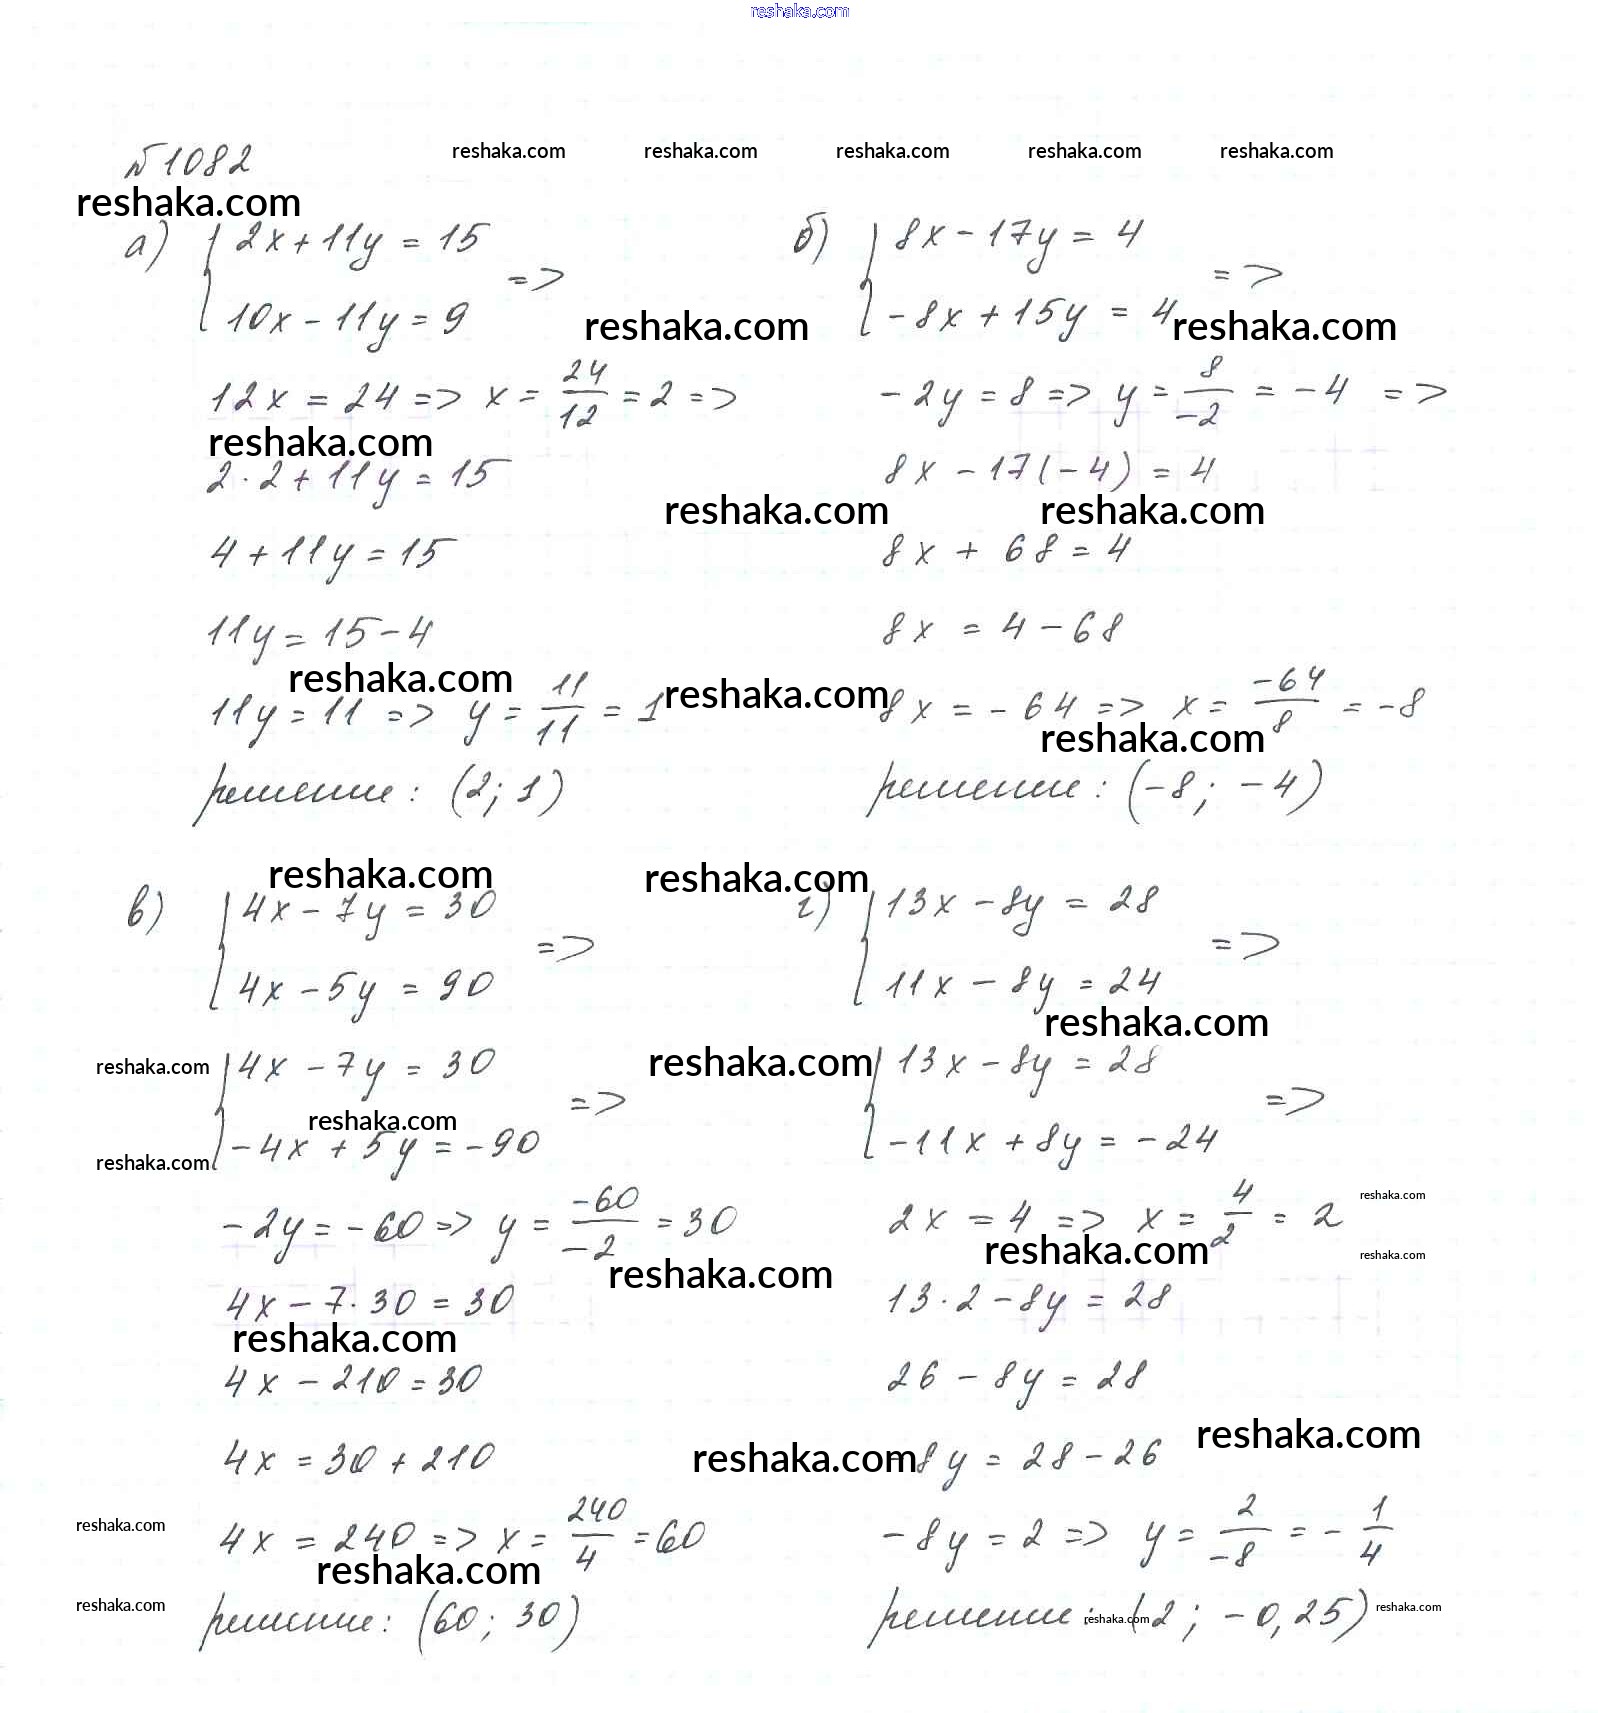 reshaka.com
№1082
reshaka.com reshaka.com reshaka.com reshaka.com reshaka.com
reshaka.com
а) { 2x + 11y = 15
10x - 11y = 9 =>
reshaka.com
12x = 24 => x = 24/12 = 2 =>
reshaka.com
2·2 + 11y = 15
reshaka.com
4 + 11y = 15
11y = 15 - 4
reshaka.com
reshaka.com
11y = 11 => y = 11/11 = 1
решение: (2; 1)
б) { 8x - 17y = 4
-8x + 15y = 4 =>
reshaka.com
-2y = 8 => y = 8/-2 = -4 =>
8x - 17(-4) = 4
reshaka.com
8x + 68 = 4
8x = 4 - 68
8x = -64 => x = -64/8 = -8
reshaka.com
решение: (-8; -4)
reshaka.com
в) { 4x - 7y = 30
4x - 5y = 90 =>
reshaka.com
{ 4x - 7y = 30
reshaka.com
-4x + 5y = -90 =>
reshaka.com
-2y = -60 => y = -60/-2 = 30
reshaka.com
4x - 7·30 = 30
reshaka.com
4x - 210 = 30
4x = 30 + 210
reshaka.com
4x = 240 => x = 240/4 = 60
reshaka.com
reshaka.com
решение: (60; 30)
reshaka.com
г) { 13x - 8y = 28
11x - 8y = 24 =>
reshaka.com
reshaka.com
{ 13x - 8y = 28
-11x + 8y = -24 =>
reshaka.com
2x = 4 => x = 4/2 = 2
reshaka.com
reshaka.com
13·2 - 8y = 28
26 - 8y = 28
reshaka.com
reshaka.com
-8y = 28 - 26
-8y = 2 => y = 2/-8 = -1/4
решение: (2; -0,25)
reshaka.com
reshaka.com